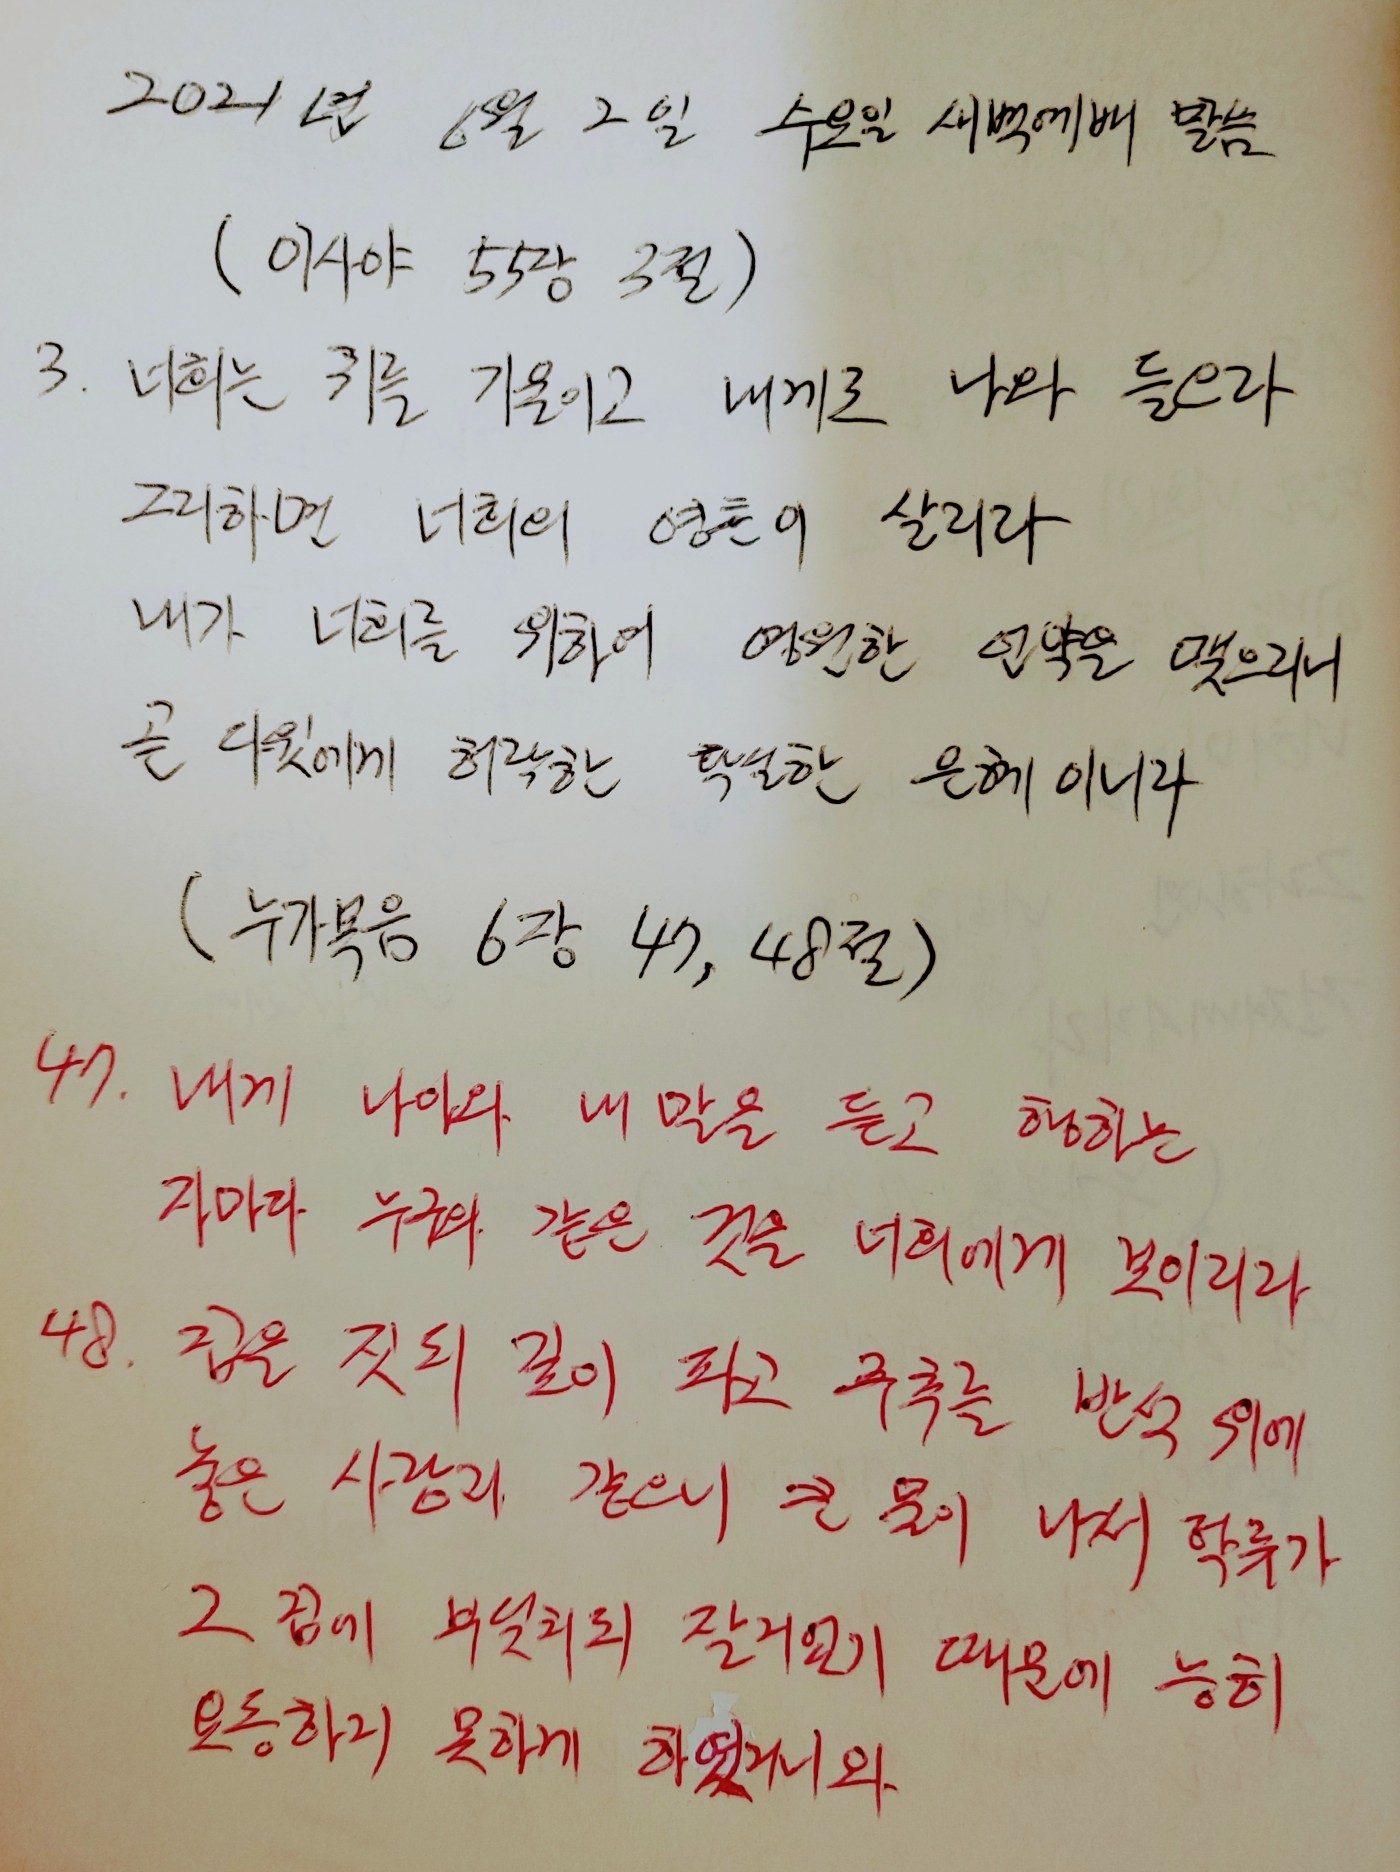 2021년 6월 2일 수요일 새벽예배 말씀
(이사야 55장 3절)
3. 너희는 귀를 기울이고 내게로 나와 들으라
그리하면 너희의 영혼이 살리라
내가 너희를 위하여 영원한 언약을 맺으리니
곧 다윗에게 허락한 확실한 은혜이니라
(누가복음 6장 47, 48절)
47. 내게 나아와 내 말을 듣고 행하는
자마다 누구와 같은 것을 너희에게 보이리라
48. 집을 짓되 깊이 파고 주추를 반석 위에
놓은 사람과 같으니 큰 물이 나서 탁류가
그 집에 부딪치되 잘 지었기 때문에 능히
요동하지 못하게 하였거니와